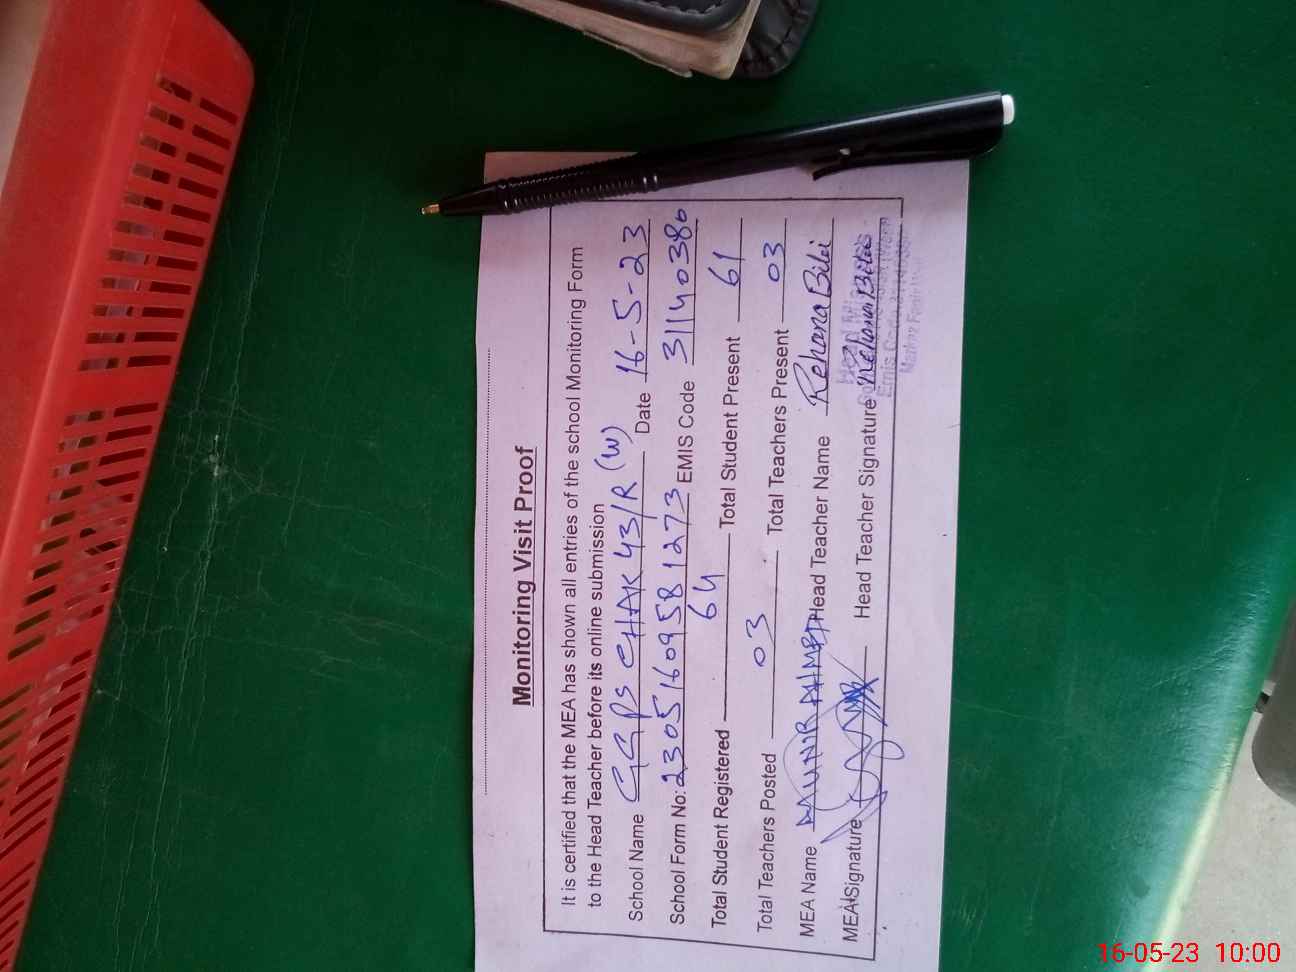 Monitoring Visit Proof
It is certified that the MEA has shown all entries of the school Monitoring Form
to the Head Teacher before its online submission
School Name GGPS CHAK 43/R (W) Date 16-5-23
School Form No: 23051609581273 EMIS Code 31140380
Total Student Registered 64 Total Student Present 61
Total Teachers Posted 03 Total Teachers Present 03
MEA Name MUNIR AHMED Head Teacher Name Rehana Bibi
MEA Signature Head Teacher Signature Rehana Bibi
Head Mistress
Emis Code
16-05-23 10:00